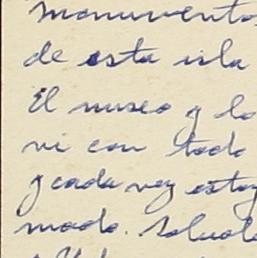 monumento
de esta isla
El museo y lo
vi con todo
y cada vez estoy
modo. Salud